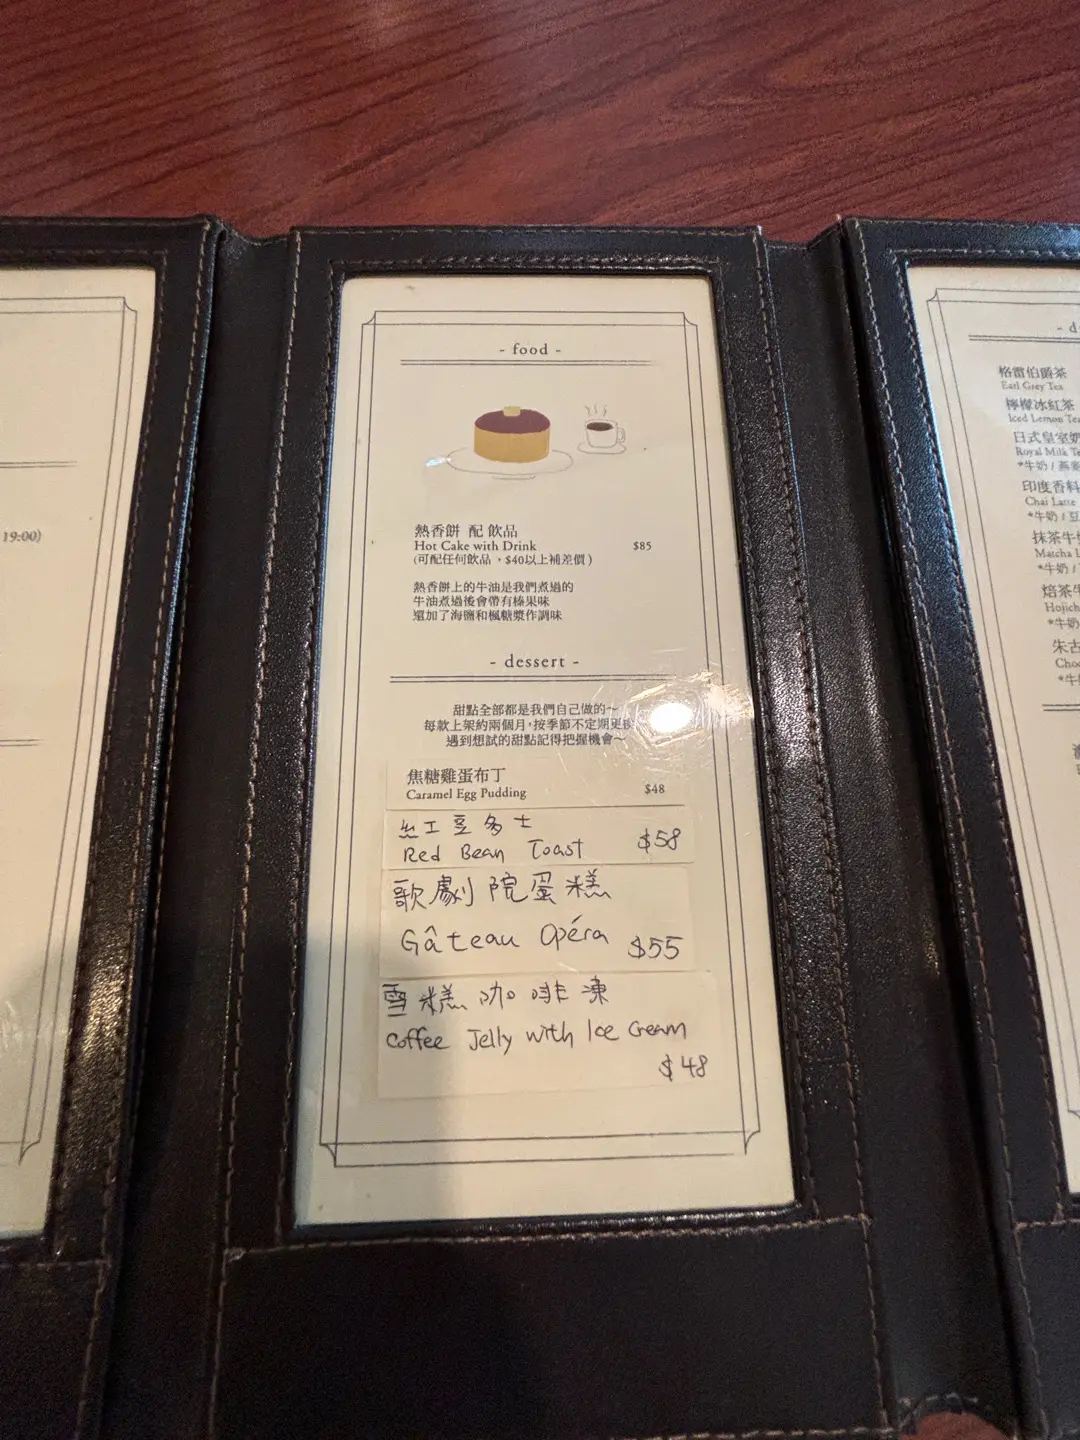 19:00)
- food -
熱香餅 配 飲品
Hot Cake with Drink $85
(可配任何飲品，$40以上補差價)
熱香餅上的牛油是我們煮過的
牛油煮過後會帶有榛果味
還加了海鹽和楓糖漿作調味
- dessert -
甜點全部都是我們自己做的~
每款上架約兩個月，按季節不定期更
遇到想試的甜點記得把握機會~
焦糖雞蛋布丁
Caramel Egg Pudding $48
紅豆多士
Red Bean Toast $58
歌劇院蛋糕
Gâteau Opéra $55
雪糕咖啡凍
Coffee Jelly with Ice Cream
$48
- d
格雷伯爵茶
Earl Grey Tea
檸檬冰紅茶
Iced Lemon Tea
日式皇室奶
Royal Milk Te
*牛奶 / 燕麥
印度香料
Chai Latte
*牛奶 / 豆
抹茶牛
Matcha L
*牛奶 /
焙茶牛
Hojich
*牛奶
朱古
Choc
*牛